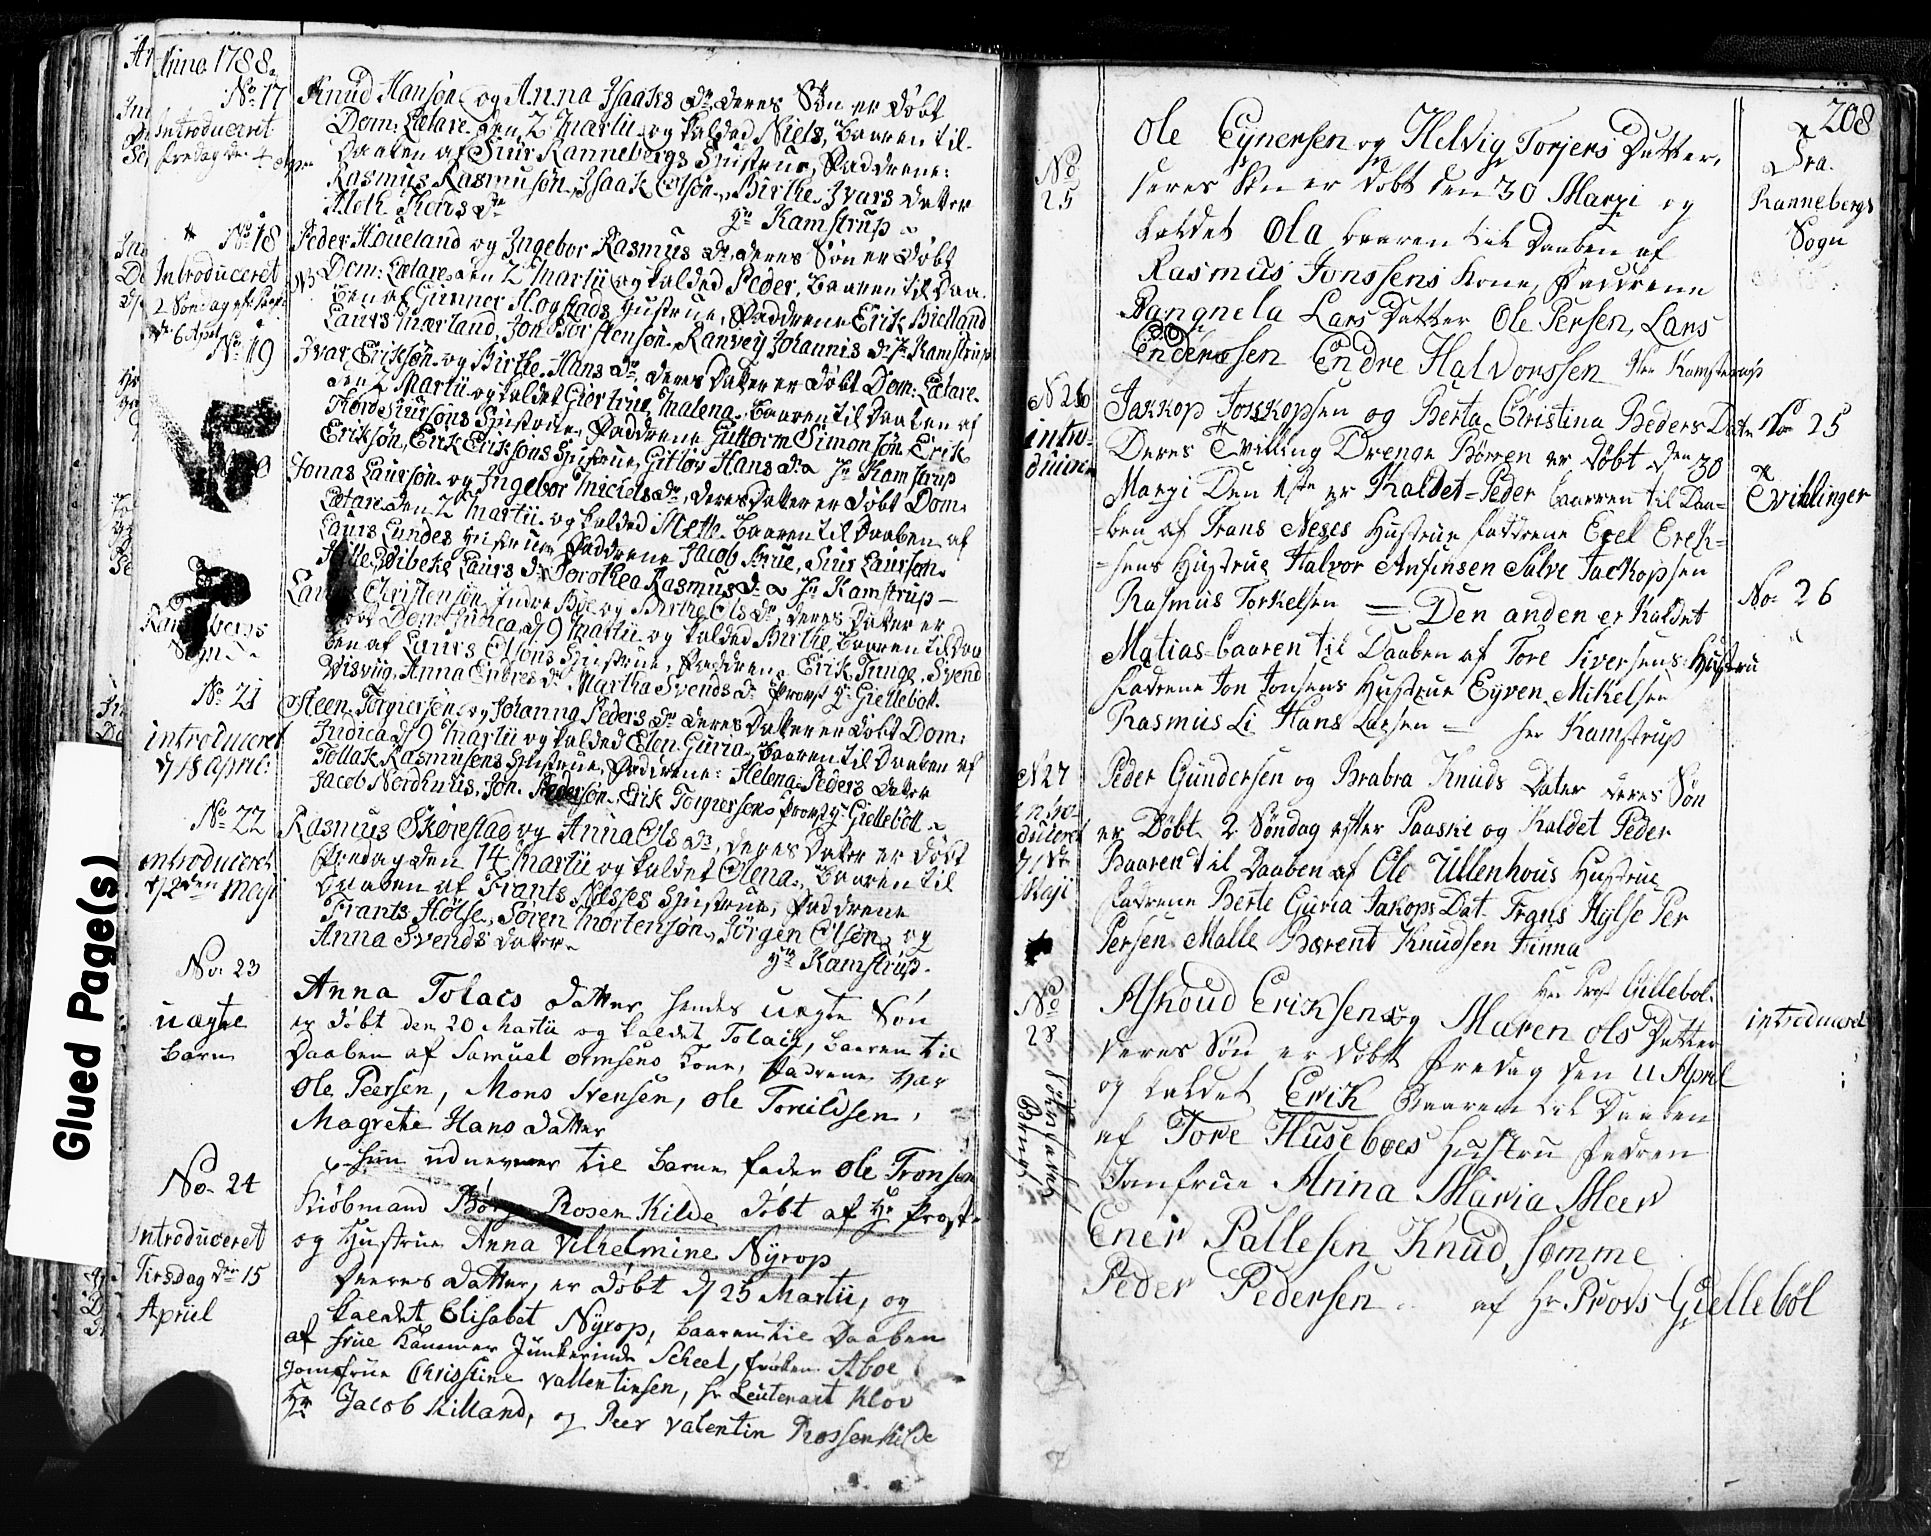 Anno 1788
No 17
Introduceret
fredag den 4
Knud Hansøn og Anna Isaaks dr deres Søn er døbt
Dom: Lætare den 2 Martii og kalded Niels, baaren til
Daaben af Siur Rannebergs Hustrue, Faddrene:
Rasmus Rasmusøn, Isaak Olsøn, Birthe Ivars Datter
Hr Kamstrup
No 18
Introduceret
d 6 April
Peder Houeland og Ingebor Rasmus dr, deres Søn er Døbt
Dom: Lætare den 2 Martii og kalded Peder, baaren til Daa
ben af Gunner Hogstads Hustrue, Faddrene Erik Bielland
Laurs Mærland, Jon Torstensøn, Ranvey Johannis dr Hr Kamstrup
No 19
Ivar Eriksøn og Birthe Hans dr, deres Datter er Døbt Dom: Lætare
den 2 Martii og kaldet Giertrue Malena, baaren til Daaben af
Siursøns Hustrue, Faddrene Guttorm Simonsøn, Erik
Eriksøn, Erik Eriksøns Hustrue, Gitlov Hans dr Hr Kamstrup
Jonas Laursøn og Ingebor Michels dr, deres Datter er døbt Dom:
Lætare den 2 Martii og kalded Mette, baaren til Daaben af
Laurs Lundes Hustrue, Faddrene Jacob Brue, Siur Laursøn
Hille, Wibeke Laurs dr Dorothea Rasmus dr Hr Kamstrup
Christensøn Indre Bøe og Birthe Ols dr, deres Datter er
døbt Dom: Judica d 9 Martii og kalded Birthe, baaren til Daa
ben af Laurs Olsøns Hustrue, Faddrene Erik Tunge, Svend
Visviig, Anna Endres dr Martha Svends dr Provst Hr Giellebøll
No 21
introduceret
d 18 april
Steen Torgiersøn og Johanna Peders dr deres Datter er døbt Dom:
Judica d 9 Martii og kalded Elen Guria, baaren til Daaben af
Tollak Rasmusens Hustrue, Faddrene: Helena Peders Datter
Jacob Nordhuus, Jon Pedersøn, Erik Torgiersøn Provst Hr Giellebøll
No 22
introduceret
d 2den Maji
Rasmus Skeiestad og Anna Ols dr, deres Datter er døbt
Fredag den 14 Martii og kaldet Olena, baaren til
Daaben af Frants Nesses Hustrue, Faddrene
Frants Hølse, Søren Mortensøn, Jørgen Olsøn og
Anna Svends Datter
Hr Kamstrup
No 23
uægte
barn
Anna Tolacs datter hendes uægte Søn
er døbt den 20 Martii og kaldet Tolach, baaren til
Daaben af Samuel Ormsens kone, fadrene var
Ole Peersen, Mons Ivensen, Ole Torkildsen,
Magrete Hans datter
hun udnevner til barne fader Ole Tronsen
No 24
Introduceret
Tirsdag den 15
Apriil
Kiøbmand Børge Rosen Kilde døbt af Hr Prost
og Hustrue Anna Vilhelmine Nyrop
Deeres datter, er døbt d 25 Martii, og
kaldet Elisabet Nyrop, baaren til Daaben
af frue Kammer Junkerinde Scheel, frøken Aboe
Jomfrue Christine Vallentinsen, hr Leutenant Klov
Hr Jacob Killand, og Peer Valentin Rossenkilde
Glued Page(s)
208
No
25
Ole Eynersen og Helvig Torjers Datter,
deres Søn er døbt den 30 Marzi og
kaldet Ola baaren til Daaben af
Rasmus Jonssens Kone, faddrene
Rangnela Lars Datter Ole Persen, Lars
Endersen Endre Halvorssen Her Kamstrup
Fra
Rannebergs
Sogn
N 26
intro-
duiren
Jakkop Joskopsen og Berta Christina Peders Dater
Deres Tvilling Drenge Børren er døbt den 30
Marzi Den 1ste er Kaldet Peder baarren til Daa-
-ben af Frans Neses Hustrue fadrene Erek Erek-
-sens Hustrue Halvor Ansinsen Salve Jackopsen
Rasmus Torkelsen = Den anden er Kaldet
Matias baaren til Daaben af Tore Siversens Hustru
fadrene Jon Jonsens Hustrue Eyven Mikelsen
Rasmus Li Hans Larsen = her Kamstrup
No 25
Tvillinger
No 26
N 27
intro
duceret
d 1ste
Maji
Peder Gundersen og Brabra Knuds Dater deres Søn
er Døbt 2 Søndag efter Paaske og Kaldet Peder
Baaren til Daaben af Ole Ullenhous Hustrue
fadrene Berte Guria Jakops Dat Frans Hylse Per
Persen Malle Bærent Knudsen Finna
Her Prost Gillebol
No
28
Aschoud Eriksen og Maren Ols Datter
deres Søn er døbt fredag den 11 April
og kaldet Erik Baaren til Daaben
af Tore Huseboes Hustru fadren
Jomfrue Anna Maria Meer
Ener Pallesen Knud Sømme
Peder Pedersen af Hr Provs Giellebøl
introduceret